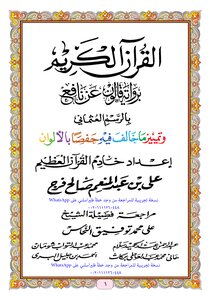 القرآن الكريم
برواية قالون عن نافع
بالرسم العثماني
وتمييز ما خالف فيه حفصا بالألوان
إعداد خادم القرآن العظيم
علي بن عبد المنعم صالح فرج
نسخة تجريبية للمراجعة من وجد خطأ فليراسلني على WhatsApp
مراجعة فضيلة الشيخ
علي محمد توفيق النحاس
نسخة تجريبية للمراجعة من وجد خطأ فليراسلني على WhatsApp
١